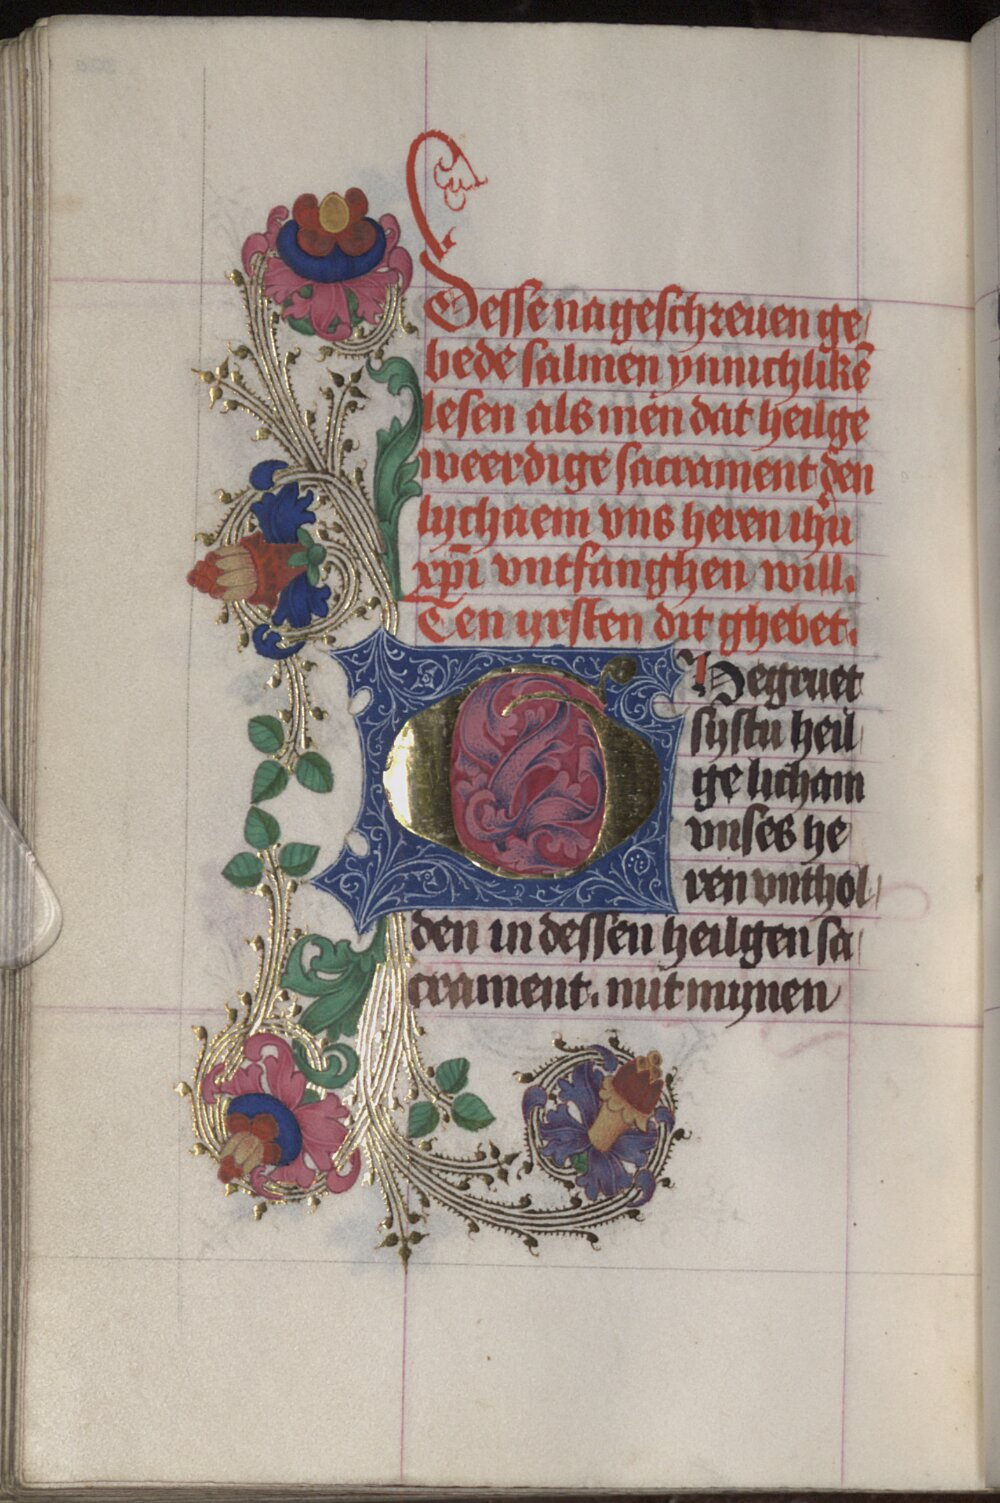 Desse nageschreuen ge
bede salmen ynnichlikē
lesen als mēn dat heilge
weerdige sacrament den
lychaem vns heren ihū
xpī vntfanghen will.
Ten yrsten dit ghebet.
O Begruet
sijstu heil
ge licham
vnses he
ren vnthol
den in dessen heilgen sa
crament. mit mynen